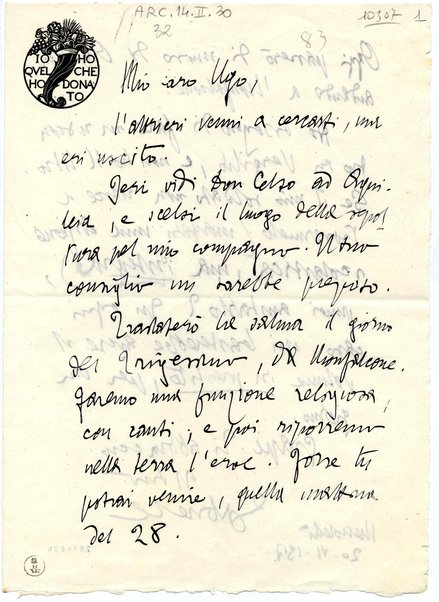 ARC.14.II.30
32
10307 1
83
IO HO
QUEL CHE
HO DONA
TO
Mio caro Ugo,
l'altrieri venni a cercarti, ma
eri uscito.
Jeri vidi Don Celso ad Aqui-
leia, e scelsi il luogo della sepol-
tura pel mio compagno. Il tuo
consiglio mi sarebbe prezioso.
Trasferirò la salma il giorno
del trigesimo, da Monfalcone.
Faremo una funzione religiosa,
con canti; e poi riporremo
nella terra l'eroe. Forse tu
potrai venire, quella mattina
del 28.